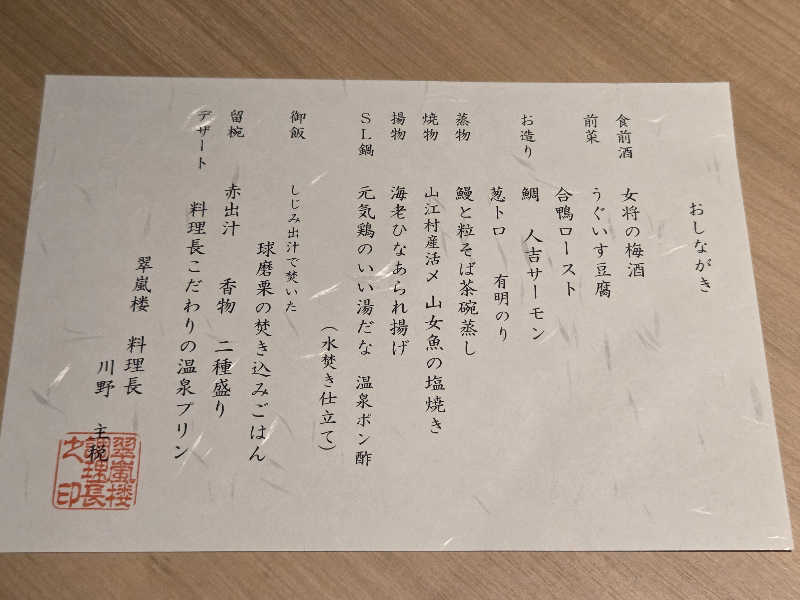 おしながき
食前酒　女将の梅酒
前菜　うぐいす豆腐
合鴨ロースト
お造り　鯛　人吉サーモン
葱トロ　有明のり
蒸物　鰻と粒そば茶碗蒸し
焼物　山江村産活〆 山女魚の塩焼き
揚物　海老ひなあられ揚げ
ＳＬ鍋　元気鶏のいい湯だな　温泉ポン酢
（水焚き仕立て）
御飯　しじみ出汁で焚いた
球磨栗の焚き込みごはん
留椀　赤出汁　香物　二種盛り
デザート　料理長こだわりの温泉プリン
翠嵐楼　料理長
川野　主税
翠嵐楼
調理長
之印